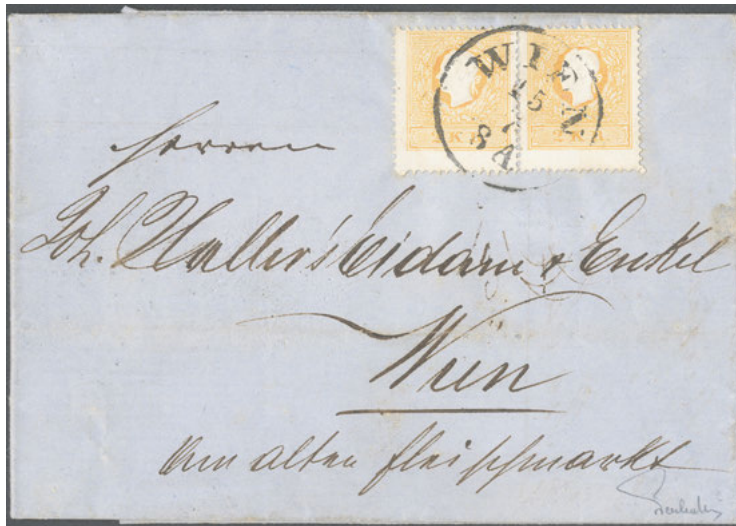 2 KR. 2 KR.
WIEN
15
8 A
Herren
Joh. Haller's Eidam & Enkel
Wien
Am alten Fleischmarkt